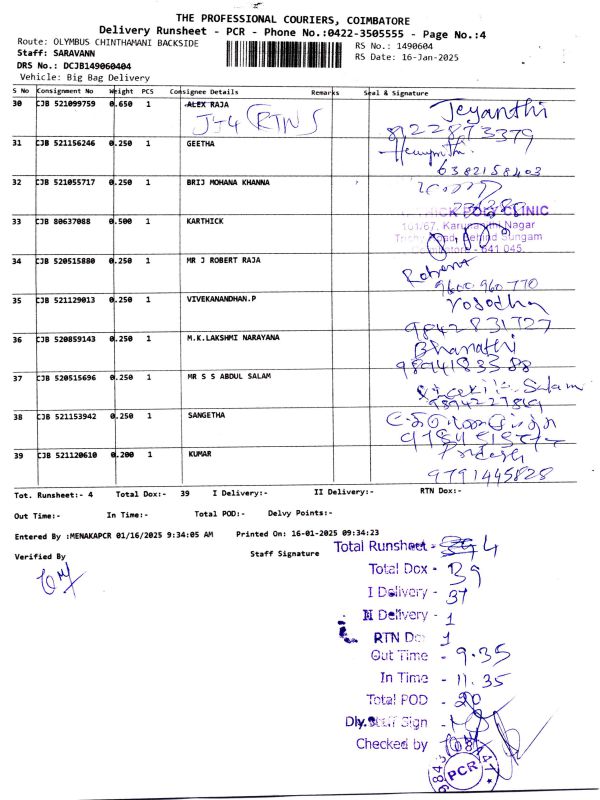 THE PROFESSIONAL COURIERS, COIMBATORE
Delivery Runsheet - PCR - Phone No.:0422-3505555 - Page No.:4
Route: OLYMBUS CHINTHAMANI BACKSIDE
RS No.: 1490604
Staff: SARAVANN
RS Date: 16-Jan-2025
DRS No.: DCJB149060404
Vehicle: Big Bag Delivery
S No Consignment No Weight PCS Consignee Details Remarks Seal & Signature
30 CJB 521099759 0.650 1 ALEX RAJA Jeyanthi
8122873379
31 CJB 521156246 0.250 1 GEETHA
6382158403
32 CJB 521055717 0.250 1 BRIJ MOHANA KHANNA
33 CJB 80637088 0.500 1 KARTHICK
POLY CLINIC
Nagar
Behind Sungam
641 045.
34 CJB 520515880 0.250 1 MR J ROBERT RAJA
9600 960 770
35 CJB 521129013 0.250 1 VIVEKANANDHAN.P
9842831727
36 CJB 520859143 0.250 1 M.K.LAKSHMI NARAYANA Bharathi
9894183388
37 CJB 520515696 0.250 1 MR S S ABDUL SALAM Salam
38 CJB 521153942 0.250 1 SANGETHA
39 CJB 521120610 0.200 1 KUMAR
9791445828
Tot. Runsheet:- 4 Total Dox:- 39 I Delivery:- II Delivery:- RTN Dox:-
Out Time:- In Time:- Total POD:- Delvy Points:-
Entered By :MENAKAPCR 01/16/2025 9:34:05 AM Printed On: 16-01-2025 09:34:23
Verified By Staff Signature
Total Runsheet - 4
Total Dox - 39
I Delivery - 37
II Delivery - 1
RTN Dox 1
Out Time - 9.35
In Time - 11.35
Total POD - 20
Dly. Staff Sign -
Checked by
PCR